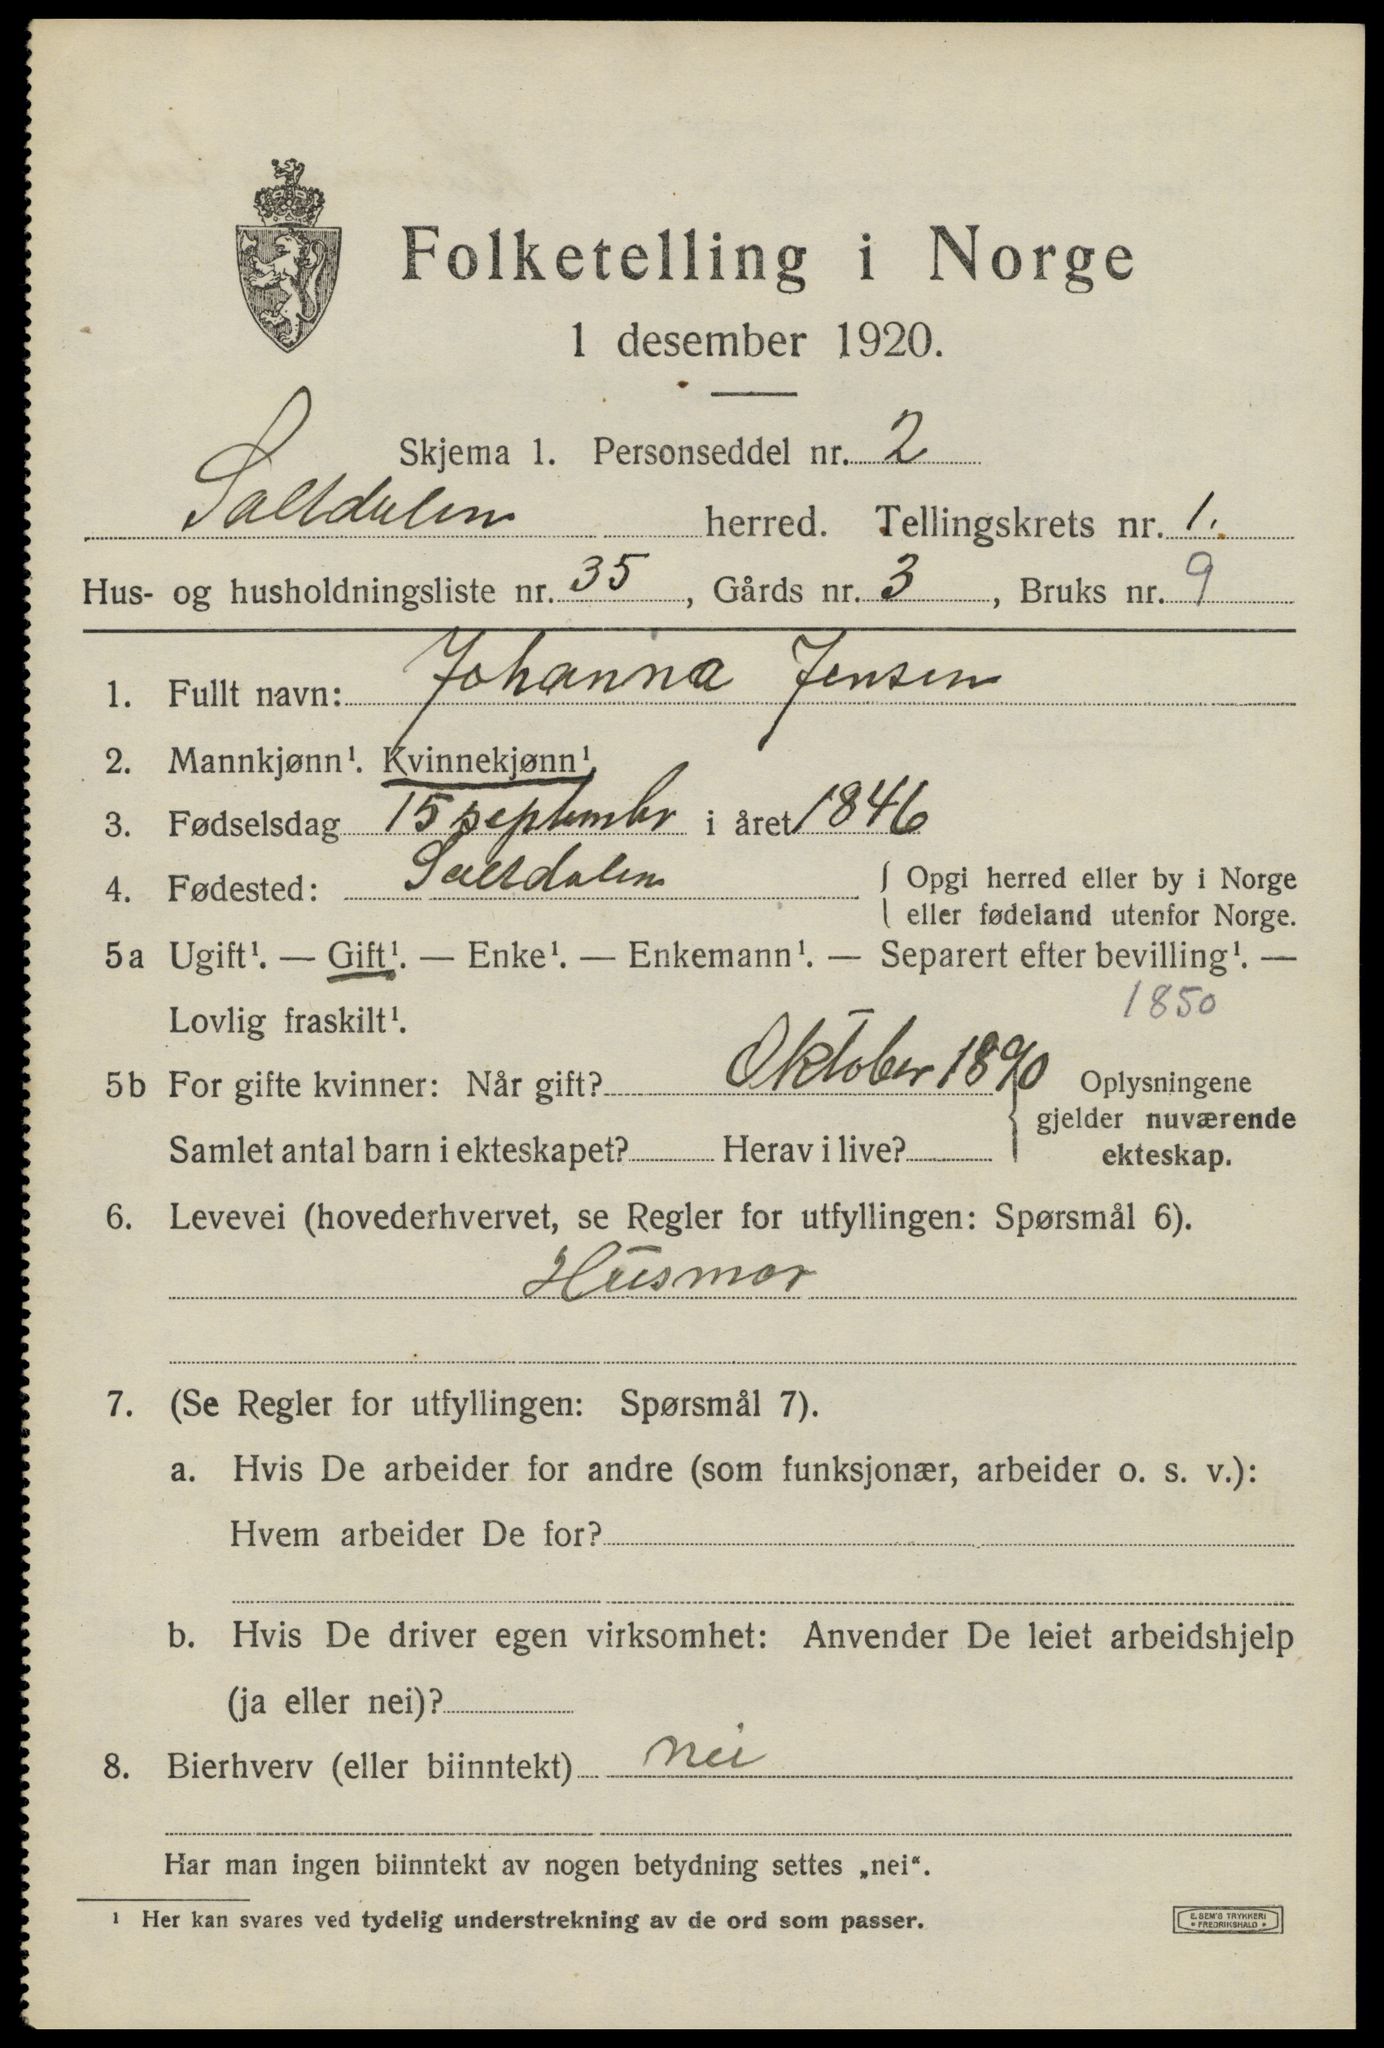 Folketelling i Norge
1 desember 1920.
Skjema 1. Personseddel nr. 2
Saltdalen herred. Tellingskrets nr. 1.
Hus- og husholdningsliste nr. 35, Gårds nr. 3, Bruks nr. 9
1. Fullt navn: Johanna Jensen
2. Mannkjønn¹. Kvinnekjønn¹.
3. Fødselsdag 15 septembr i året 1846
4. Fødested: Saltdalen { Opgi herred eller by i Norge
eller fødeland utenfor Norge.
5a Ugift¹. — Gift¹. — Enke¹. — Enkemann¹. — Separert efter bevilling¹. —
Lovlig fraskilt¹. 1850
5b For gifte kvinner: Når gift? Oktober 1890 { Oplysningene
gjelder nuværende
Samlet antal barn i ekteskapet? Herav i live? ekteskap.
6. Levevei (hovederhvervet, se Regler for utfyllingen: Spørsmål 6).
Husmor
7. (Se Regler for utfyllingen: Spørsmål 7).
a. Hvis De arbeider for andre (som funksjonær, arbeider o. s. v.):
Hvem arbeider De for?
b. Hvis De driver egen virksomhet: Anvender De leiet arbeidshjelp
(ja eller nei)?
8. Bierhverv (eller biinntekt) nei
Har man ingen biinntekt av nogen betydning settes „nei“.
¹ Her kan svares ved tydelig understrekning av de ord som passer.
E. SEM'S TRYKKERI
• FREDRIKSHALD •